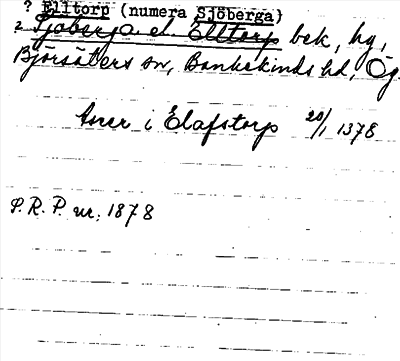 ? Elltorp (numera Sjöberga)
? Sjöberga el. Elltorp bek, hg,
Björsäters sn, Bankekinds hd, Ög.
Aner i Elafstorp 20/1 1378
S.R.P. nr. 1878